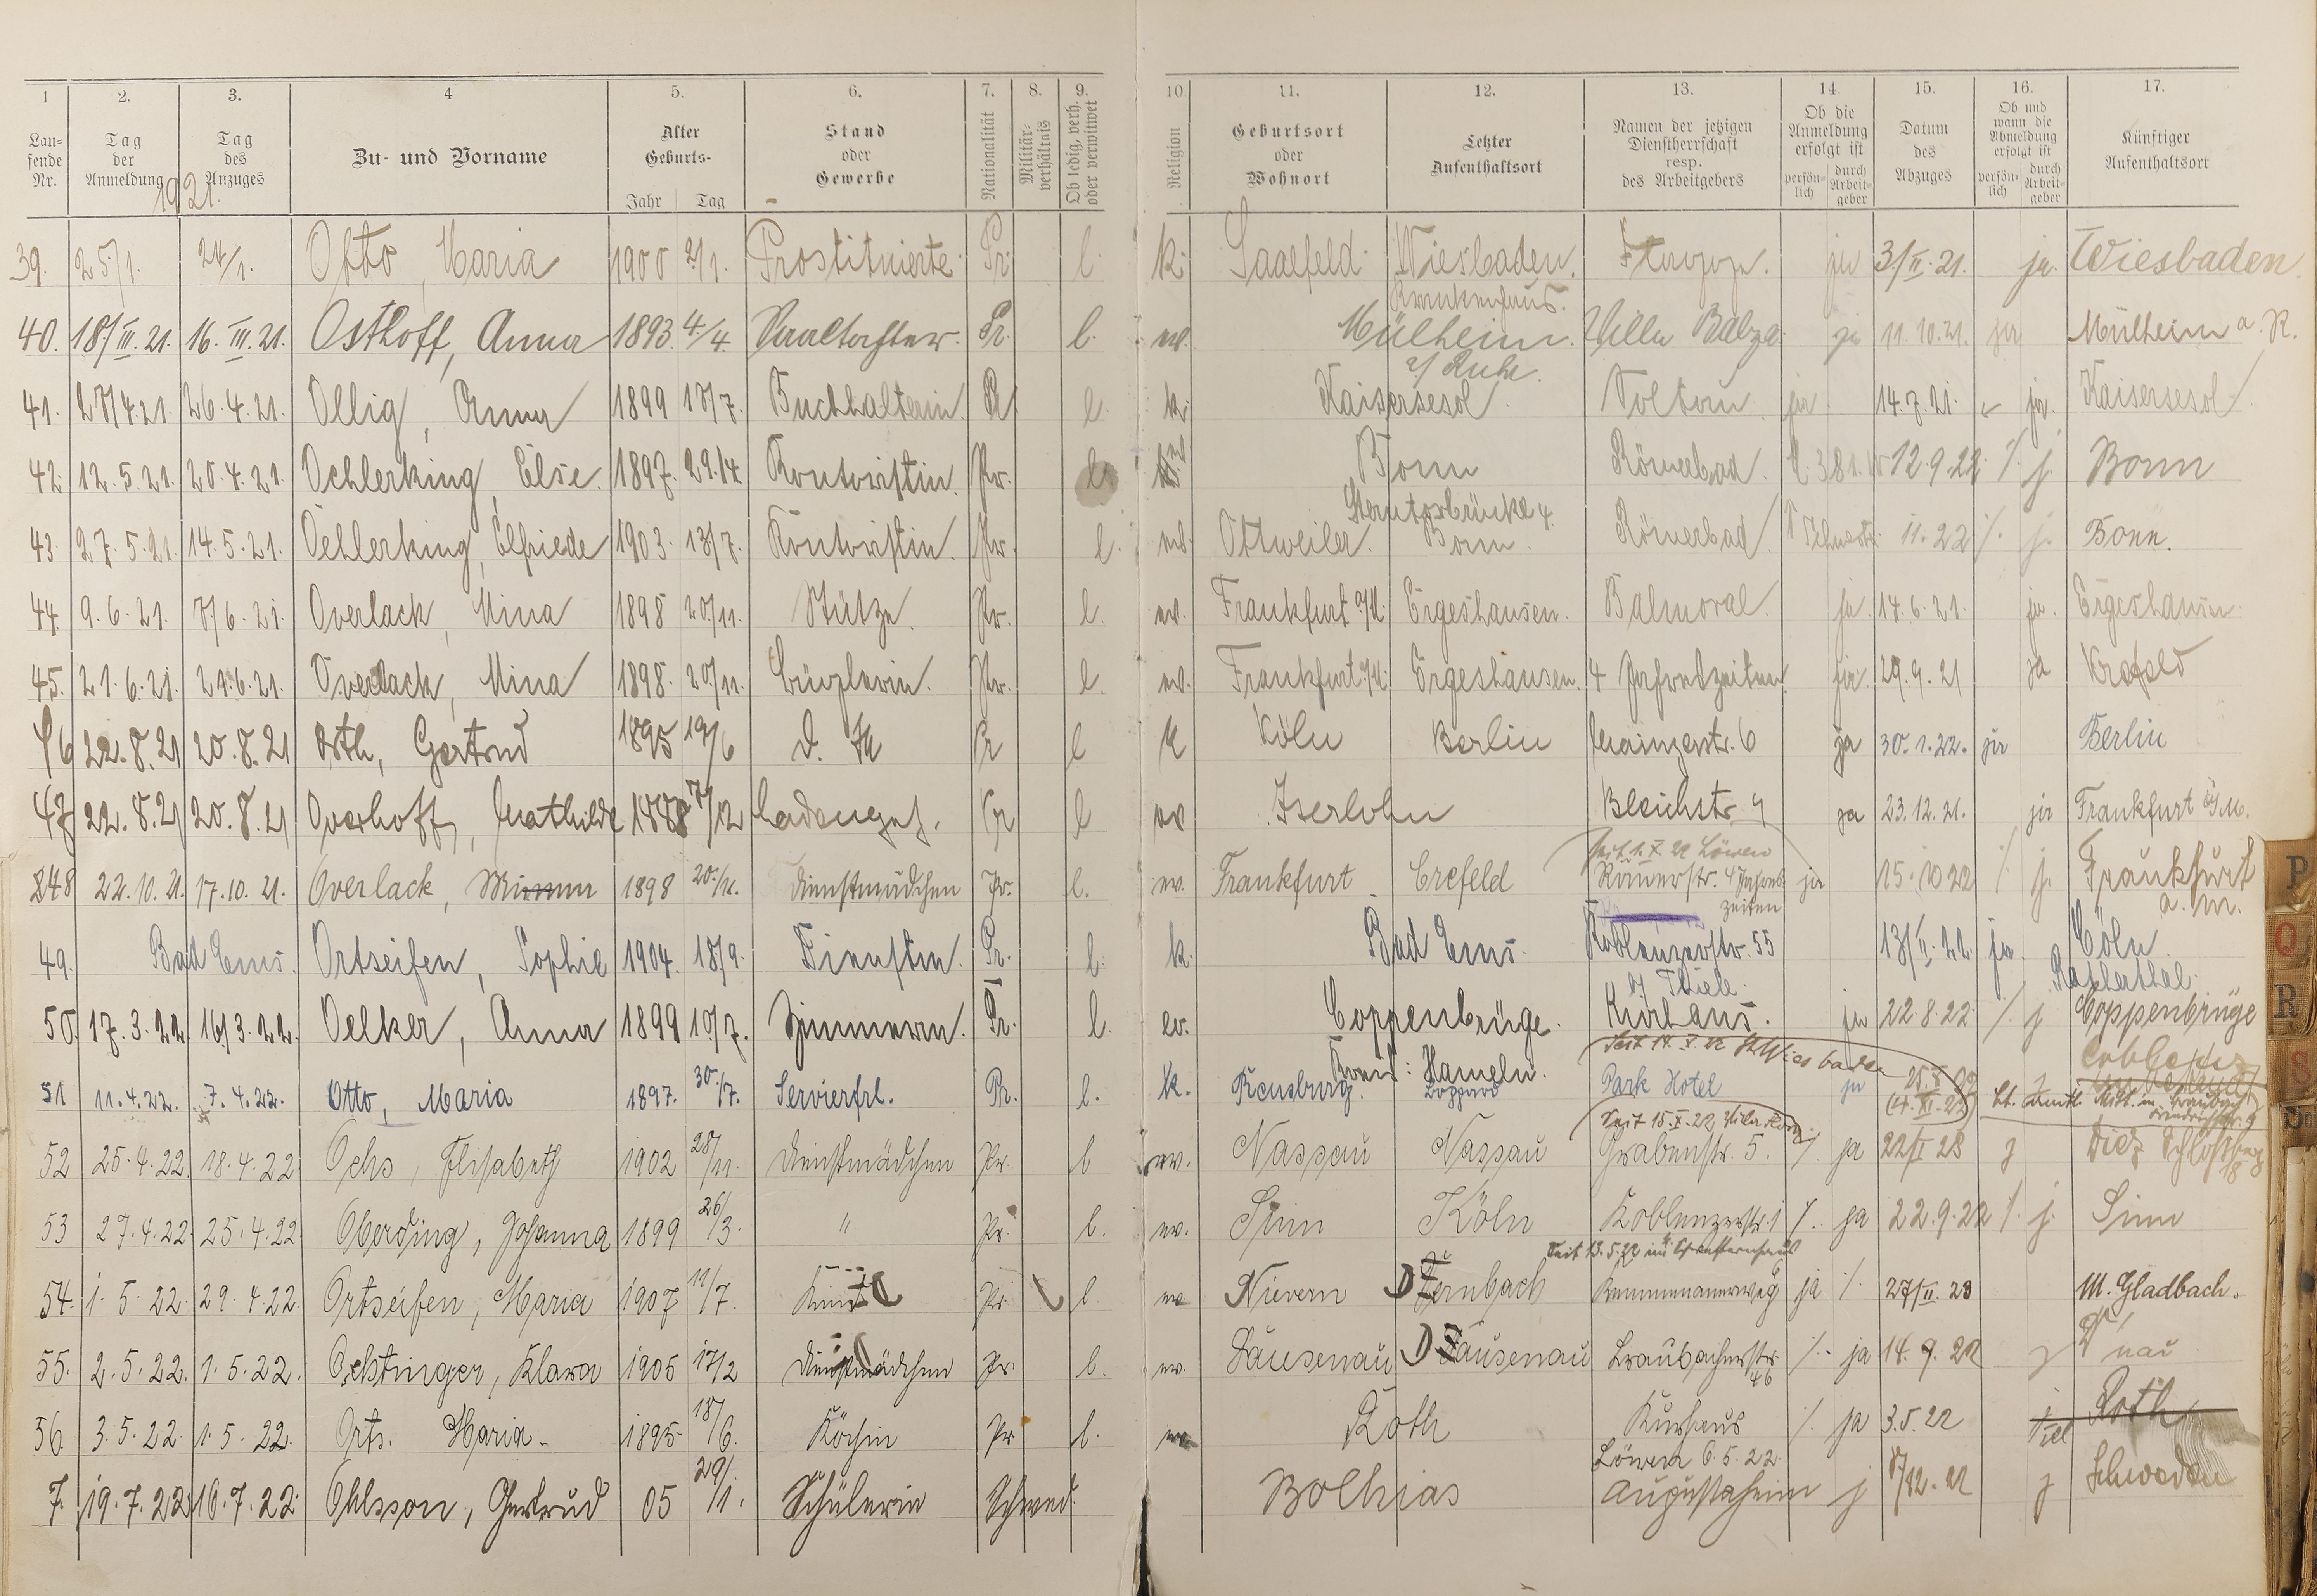 1 2. 3. 4 5. 6. 7. 8. 9. 10. 11. 12. 13. 14. 15. 16. 17.
Laufende Nr. Tag der Anmeldung Tag des Anzuges Zu- und Vorname Alter Geburts- Jahr Tag Stand oder Gewerbe Nationalität Militärverhältnis Ob ledig, verh. oder verwitwet Religion Geburtsort oder Wohnort Letzter Aufenthaltsort Namen der jetzigen Dienstherrschaft resp. des Arbeitgebers Ob die Anmeldung erfolgt ist persönlich durch Arbeitgeber Datum des Abzuges Ob und wann die Abmeldung erfolgt ist persönlich durch Arbeitgeber Künftiger Aufenthaltsort
1921.
39. 25/1. 24/1. Otto, Maria 1900 2/1. Prostituierte Pr. l. k. Saalfeld Wiesbaden. ja 3/II.21. ja. Wiesbaden.
Krankenhaus.
40. 18/III.21. 16.III.21. Osthoff, Anna 1893. 4/4. Pr. l. ev. Mülheim. Villa Balzer ja 11.10.21. ja Mülheim a. R.
a/ Ruhr.
41. 28/4.21. 26.4.21. Ollig, Anna 1899 18/7. Buchhalterin. Pr. l. k. Kaisersesch ja 14.7.21. ja. Kaisersesch.
42. 12.5.21. 20.4.21. Oehlerking, Else. 1897. 29./4. Kontoristin. Pr. l. ev. Bonn Römerbad. 12.9.22. /. j. Bonn
Sterntorbrücke 4.
43. 27.5.21. 14.5.21. Oehlerking, Elfriede 1903. 13/7. Kontoristin. Pr. l. ev. Ottweiler. Bonn. Römerbad. 11.22 /. j. Bonn.
44. 9.6.21. 8/6.21. Overlack, Mina 1898 20./11. Stütze. Pr. l. ev. Frankfurt a/M. Ergeshausen. Balmoral. ja 14.6.21. ja. Ergeshausen.
45. 21.6.21. 21.6.21. Overlack, Mina 1898. 20./11. Büglerin. Pr. l. ev. Frankfurt a/M. Ergeshausen. 4 Jahreszeiten. ja. 29.9.21 ja Krefeld
46 22.8.21 20.8.21 Orth, Gertrud 1895 19/6 Pr l k Köln Berlin Mainzerstr. 6 ja 30.1.22. ja Berlin
47 22.8.21 20.8.21 Overhoff, Mathilde 1888 7/12 Pr l ev Iserlohn Bleichstr. 9 ja 23.12.21. ja Frankfurt a/M.
seit 1.X.22 Löwen
48 22.10.21. 17.10.21. Overlack, Minna 1898 20./11. Dienstmädchen Pr. l. ev. Frankfurt Crefeld Römerstr. 4 Jahreszeiten ja 15.10.22 /. j. Frankfurt a. M.
49. Bad Ems. Ortseifen, Sophie 1904. 18/9. Dienstm. Pr. l. k. Bad Ems. Koblenzerstr. 55 13/II.22. ja. Cöln
b/ Thiele.
50. 17.3.22 16/3.22. Oelker, Anna 1899 10./7. Zimmerm. Pr. l. ev. Coppenbrüge. Kurhaus. ja 22.8.22. /. j Coppenbrüge
Kreis: Hameln.
51 11.4.22. 7.4.22. Otto, Maria 1897. 30./7. Servierfrl. Pr. l. k. Boppard Park Hotel ja
52 25.4.22. 18.4.22 Ochs, Elisabeth 1902 28/11. Dienstmädchen Pr. l ev. Nassau Nassau Grabenstr. 5. /. ja 22/I 23 j Diez Schloßberg 18
53 27.4.22. 25.4.22 Oberding, Johanna 1899 26/3. " Pr. l. ev. Sinn Köln Koblenzerstr. 1 /. ja 22.9.22 /. j. Sinn
54. 1.5.22. 29.4.22. Ortseifen, Maria 1907 11/7. Pr. l. ev Nievern Dernbach Kemmenauerweg ja /. 27/II.23 M. Gladbach.
55. 2.5.22. 1.5.22. Oehlinger, Klara 1905 17/2 Dienstmädchen Pr. l. ev. Dausenau Dausenau Braubacherstr. 46 /. ja 14.9.22 j D'nau
56. 3.5.22. 1.5.22. Orts. Maria. 1895 18/6. Köchin Pr l. ev Roth Kurhaus /. ja 3.5.22 Roth
Löwen 6.5.22.
7. 19.7.22 16.7.22. Ohlsson, Gertrud 05 29/1. Schülerin Schwed. Augustaheim j 8/12.22 j Schweden
P
Q
R
S